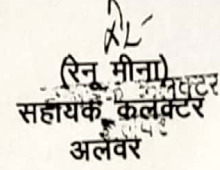 (रेनू मीना)
सहायक कलक्टर
अलवर